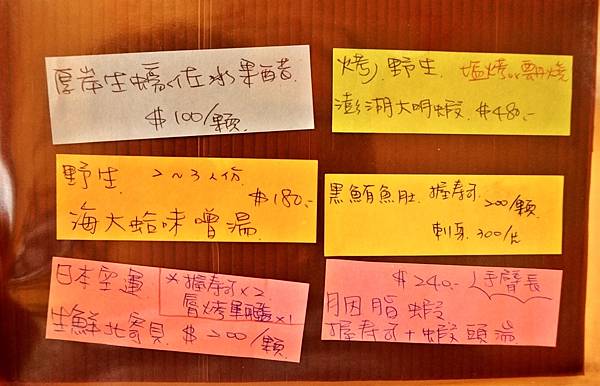 厚岸生蠔佐水果醋.
$100/顆.
烤 野生 塩烤
澎湖大明蝦. $480.-
野生. 2~3人份. $180.-
海大蛤味噌湯.
黑鮪魚肚. 握壽司 200/顆.
刺身. 300/片
日本空運 *握壽司×2
生鮮北寄貝. $200/顆.
$240.- 手臂長
胭脂蝦
握壽司+蝦頭湯